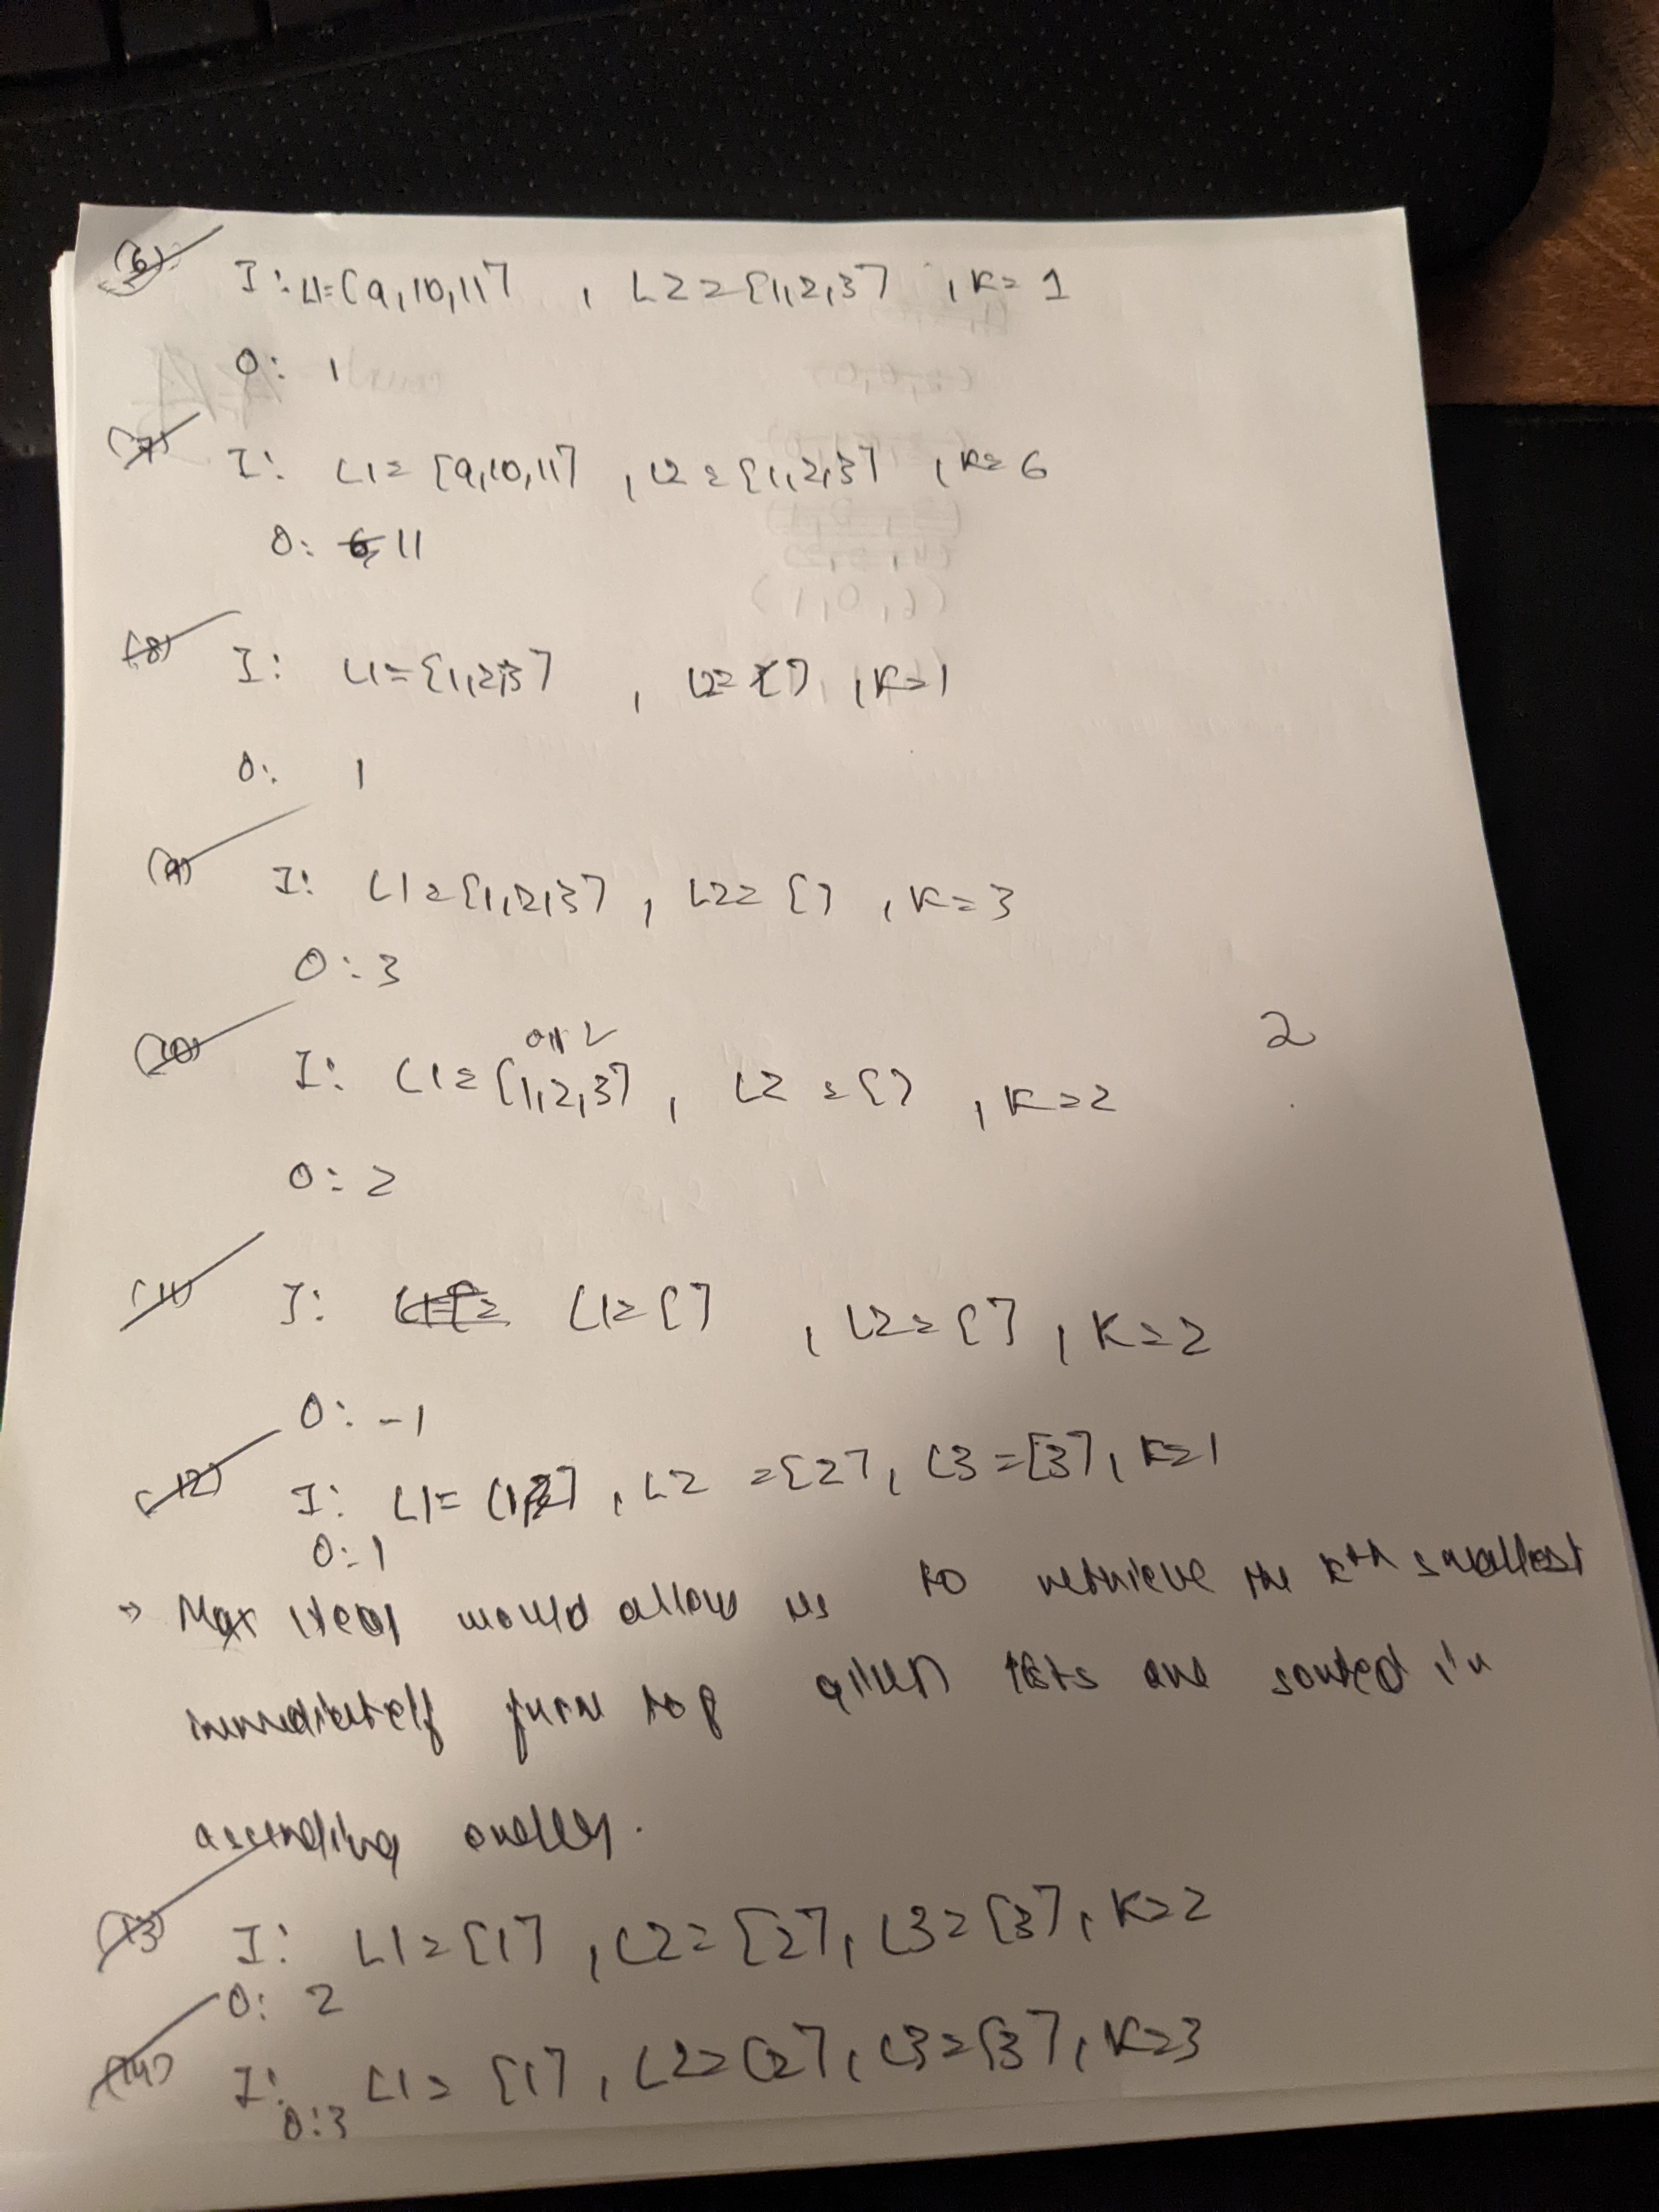 (6) I: L1=[9,10,11] , L2=[1,2,3] , K=1
O: 1
(7) I: L1=[9,10,11] , L2=[1,2,3] , K=6
O: 6 11
(8) I: L1=[1,2,3] , L2=[] , K=1
O: 1
(9) I: L1=[1,2,3] , L2=[] , K=3
O: 3
2
(10) I: L1=[1,2,3] , L2=[] , K=2
O: 2
(11) I: L1=[] , L2=[] , K=2
O: -1
(12) I: L1=[1] , L2=[2] , L3=[3] , K=1
O: 1
→ Max Heap would allow us to retrieve the Kth smallest
immediately from top given lists are sorted in
ascending order.
(13) I: L1=[1] , L2=[2] , L3=[3] , K=2
O: 2
(14) I: L1=[1] , L2=[2] , L3=[3] , K=3
O: 3